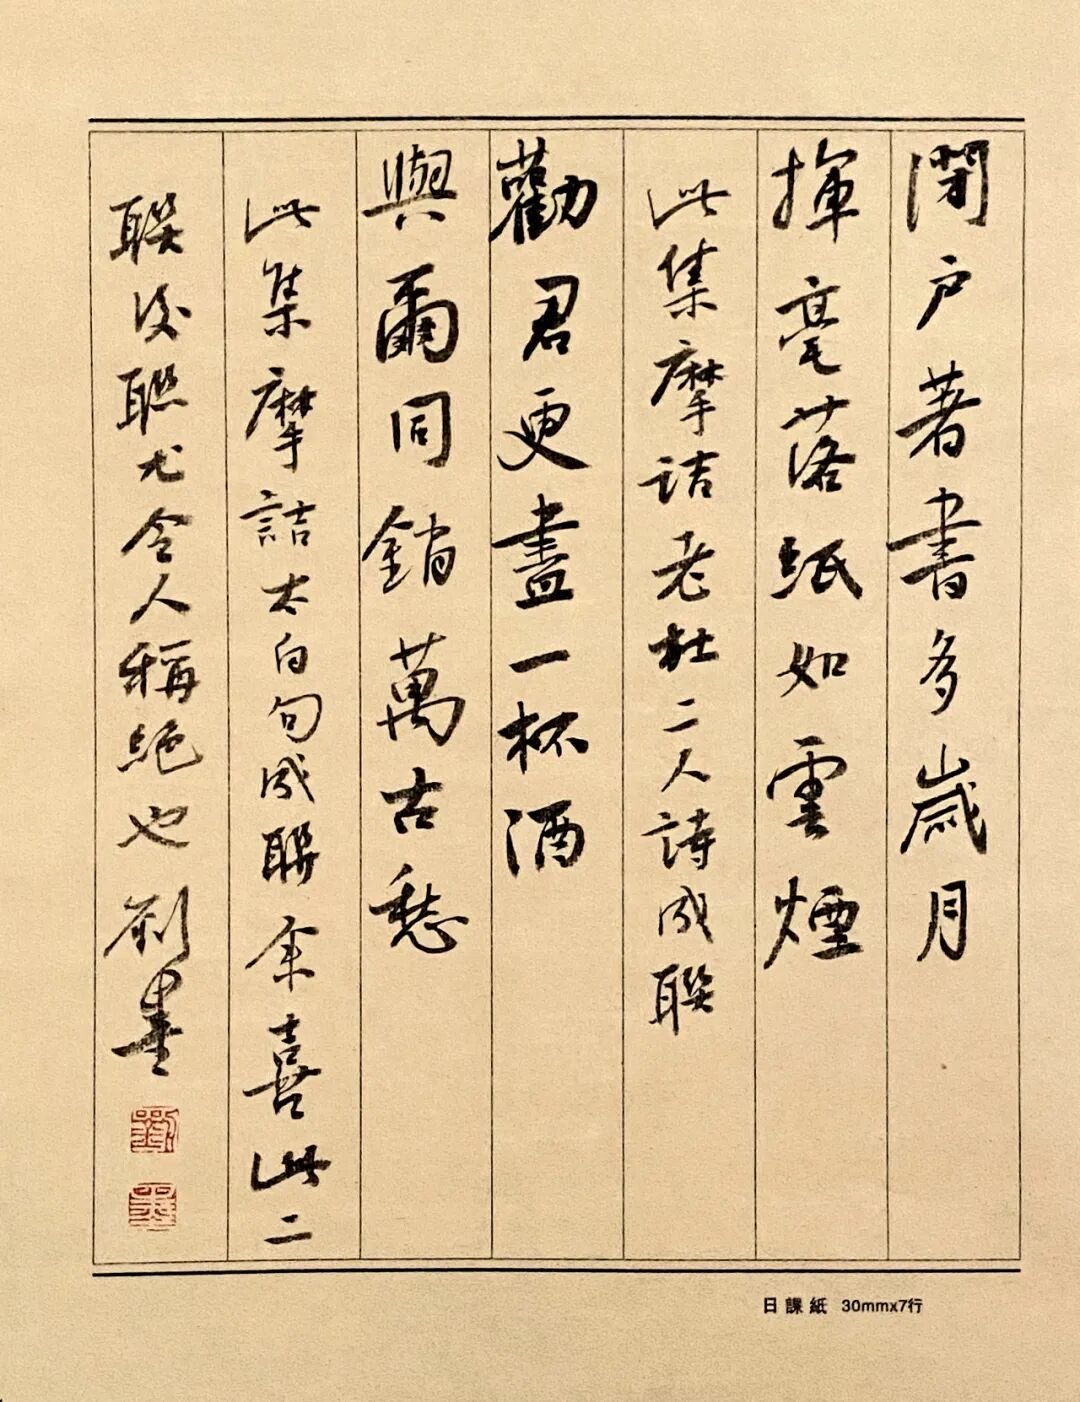 閉户著書多歲月
揮毫落紙如雲煙
此集摩詰老杜二人詩成聯
勸君更盡一杯酒
與爾同銷萬古愁
此集摩詰太白句成聯余喜此二
聯後聯尤令人稱絕也劉墨
日課紙 30mmx7行